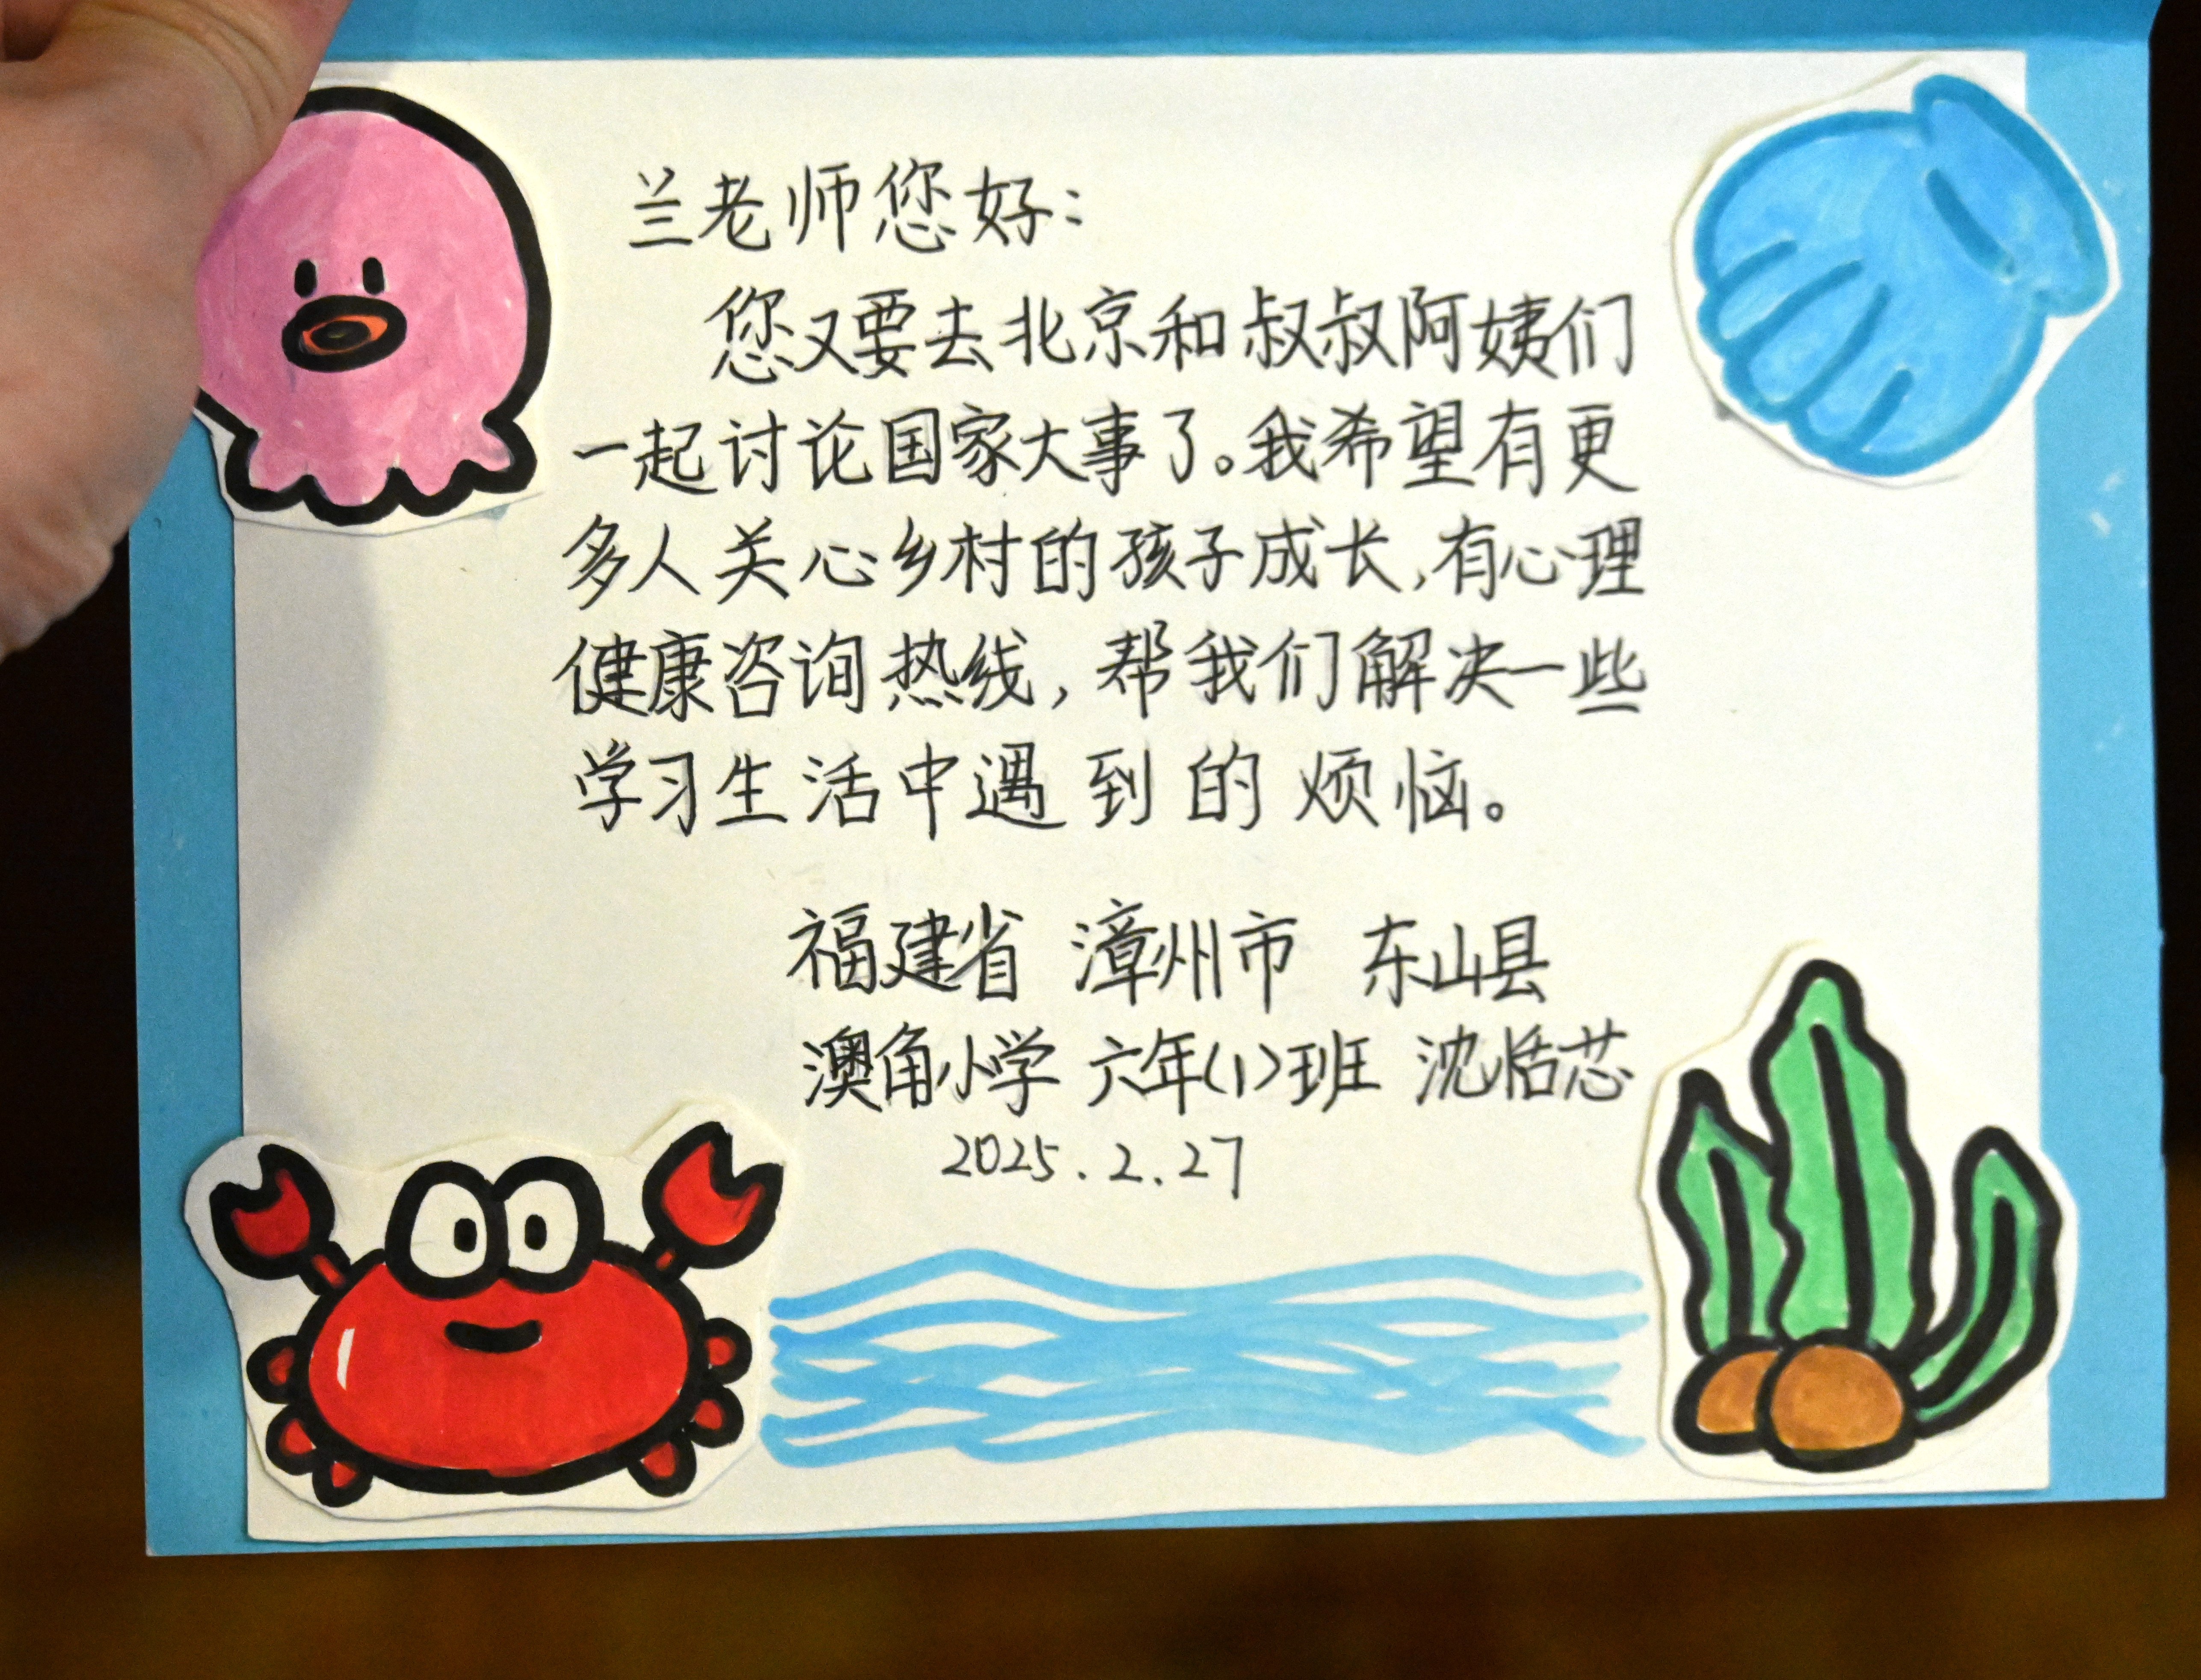 兰老师您好：
您又要去北京和叔叔阿姨们
一起讨论国家大事了。我希望有更
多人关心乡村的孩子成长，有心理
健康咨询热线，帮我们解决一些
学习生活中遇到的烦恼。
福建省 漳州市 东山县
澳角小学 六年(1)班 沈恬芯
2025.2.27